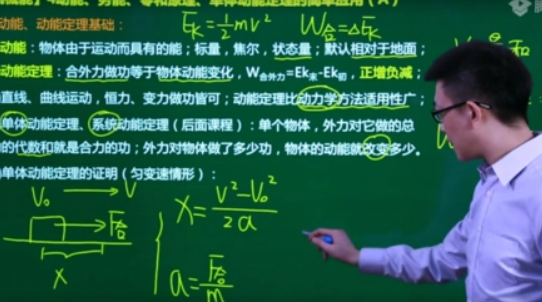 E_K=½mv² W合=ΔE_K
动能、动能定理基础:
动能:物体由于运动而具有的能;标量,焦尔,状态量;默认相对于地面;
动能定理:合外力做功等于物体动能变化,W合外力=Ek末-Ek初,正增负减;
直线、曲线运动,恒力、变力做功皆可;动能定理比动力学方法适用性广;
单体动能定理、系统动能定理(后面课程):单个物体,外力对它做的总
的代数和就是合力的功;外力对物体做了多少功,物体的动能就改变多少。
单体动能定理的证明(匀变速情形):
V₀ V
F合
X
X=(V²-V₀²)/2a
a=F合/m